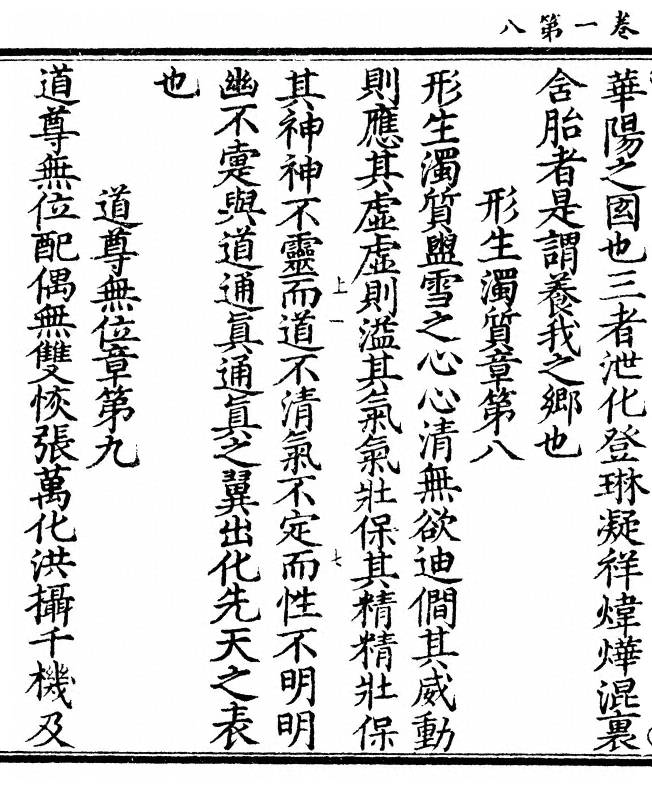 卷一第八
華陽之國也三者泄化登琳凝祥煒燁混裏
舍胎者是謂養我之鄉也
形生濁質章第八
形生濁質盥雪之心心清無欲迪僩其威動
則應其虛虛則溢其氣氣壯保其精精壯保
其神神不靈而道不清氣不定而性不明明
上一
七
幽不寔與道通眞通眞之翼出化先天之表
也
道尊無位章第九
道尊無位配偶無雙恢張萬化洪攝千機及